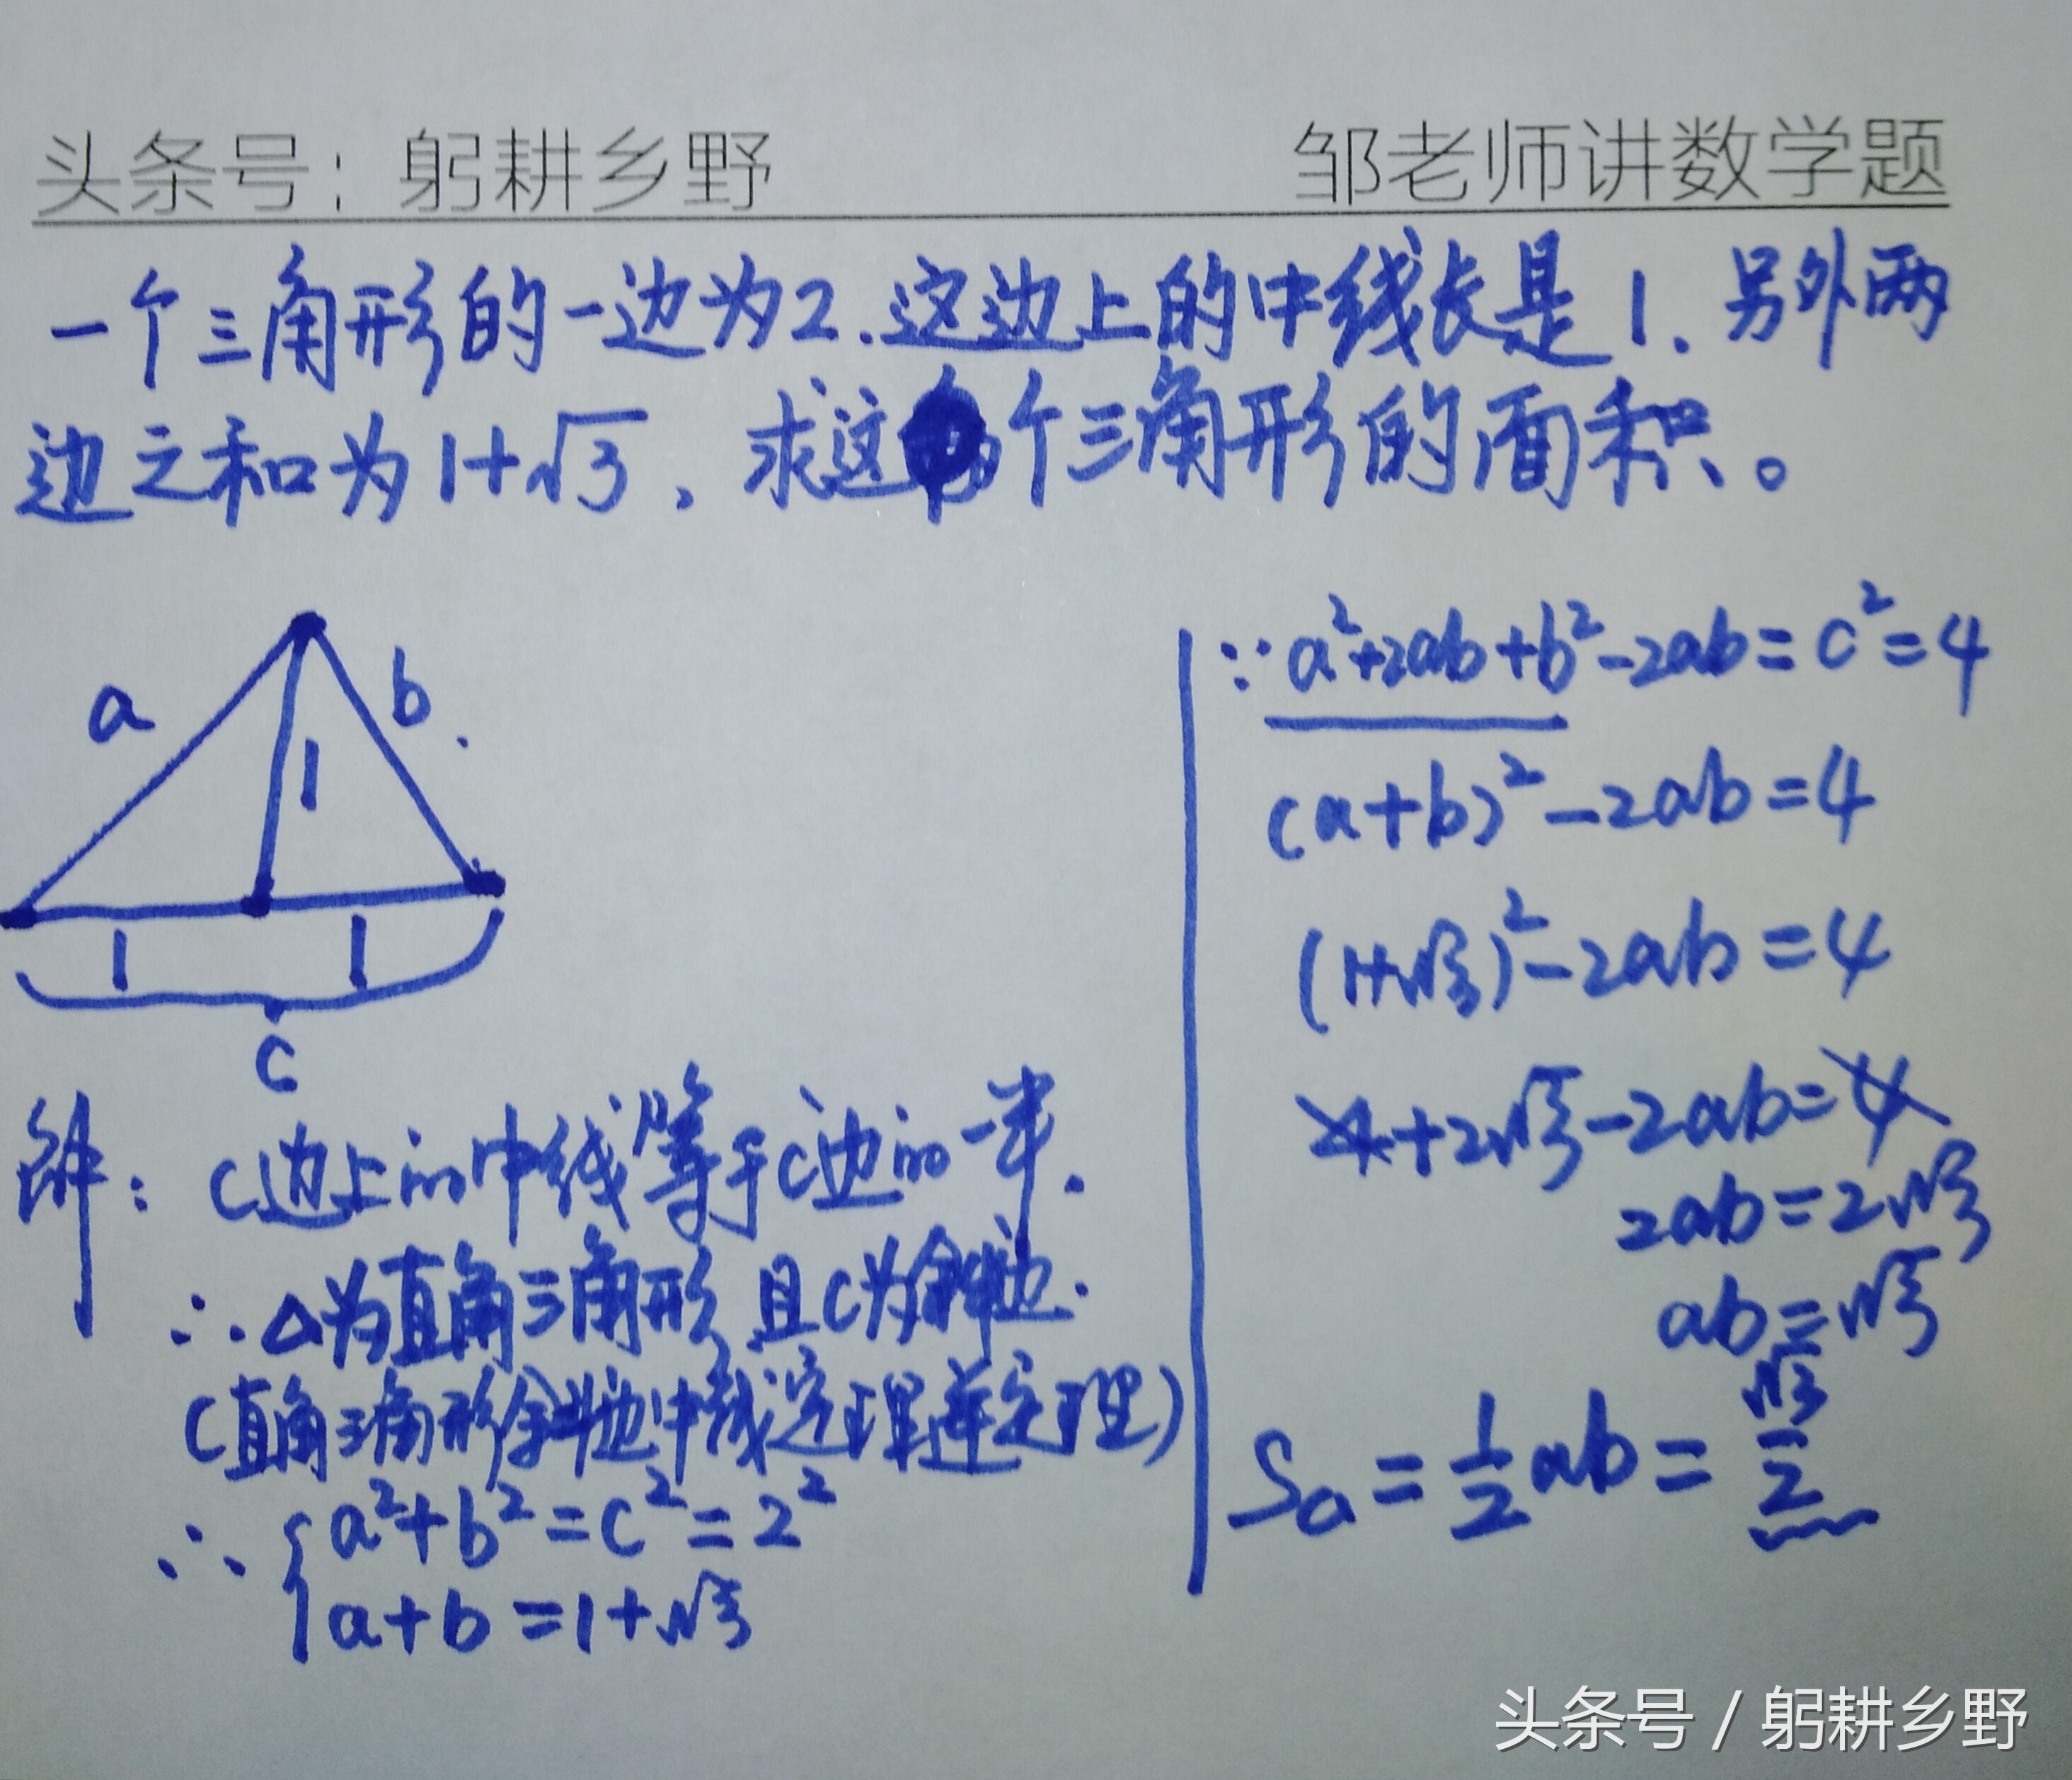 头条号：躬耕乡野 邹老师讲数学题
一个三角形的一边为2.这边上的中线长是1.另外两
边之和为1+√3,求这个三角形的面积。
a
b
1
1
1
c
解：C边上的中线等于C边的一半.
∴△为直角三角形 且C为斜边.
(直角三角形斜边中线定理逆定理)
∴{a²+b²=c²=2²
a+b=1+√3
∵a²+2ab+b²-2ab=c²=4
(a+b)²-2ab=4
(1+√3)²-2ab=4
4+2√3-2ab=4
2ab=2√3
ab=√3
S△=1/2ab=√3/2
头条号/躬耕乡野